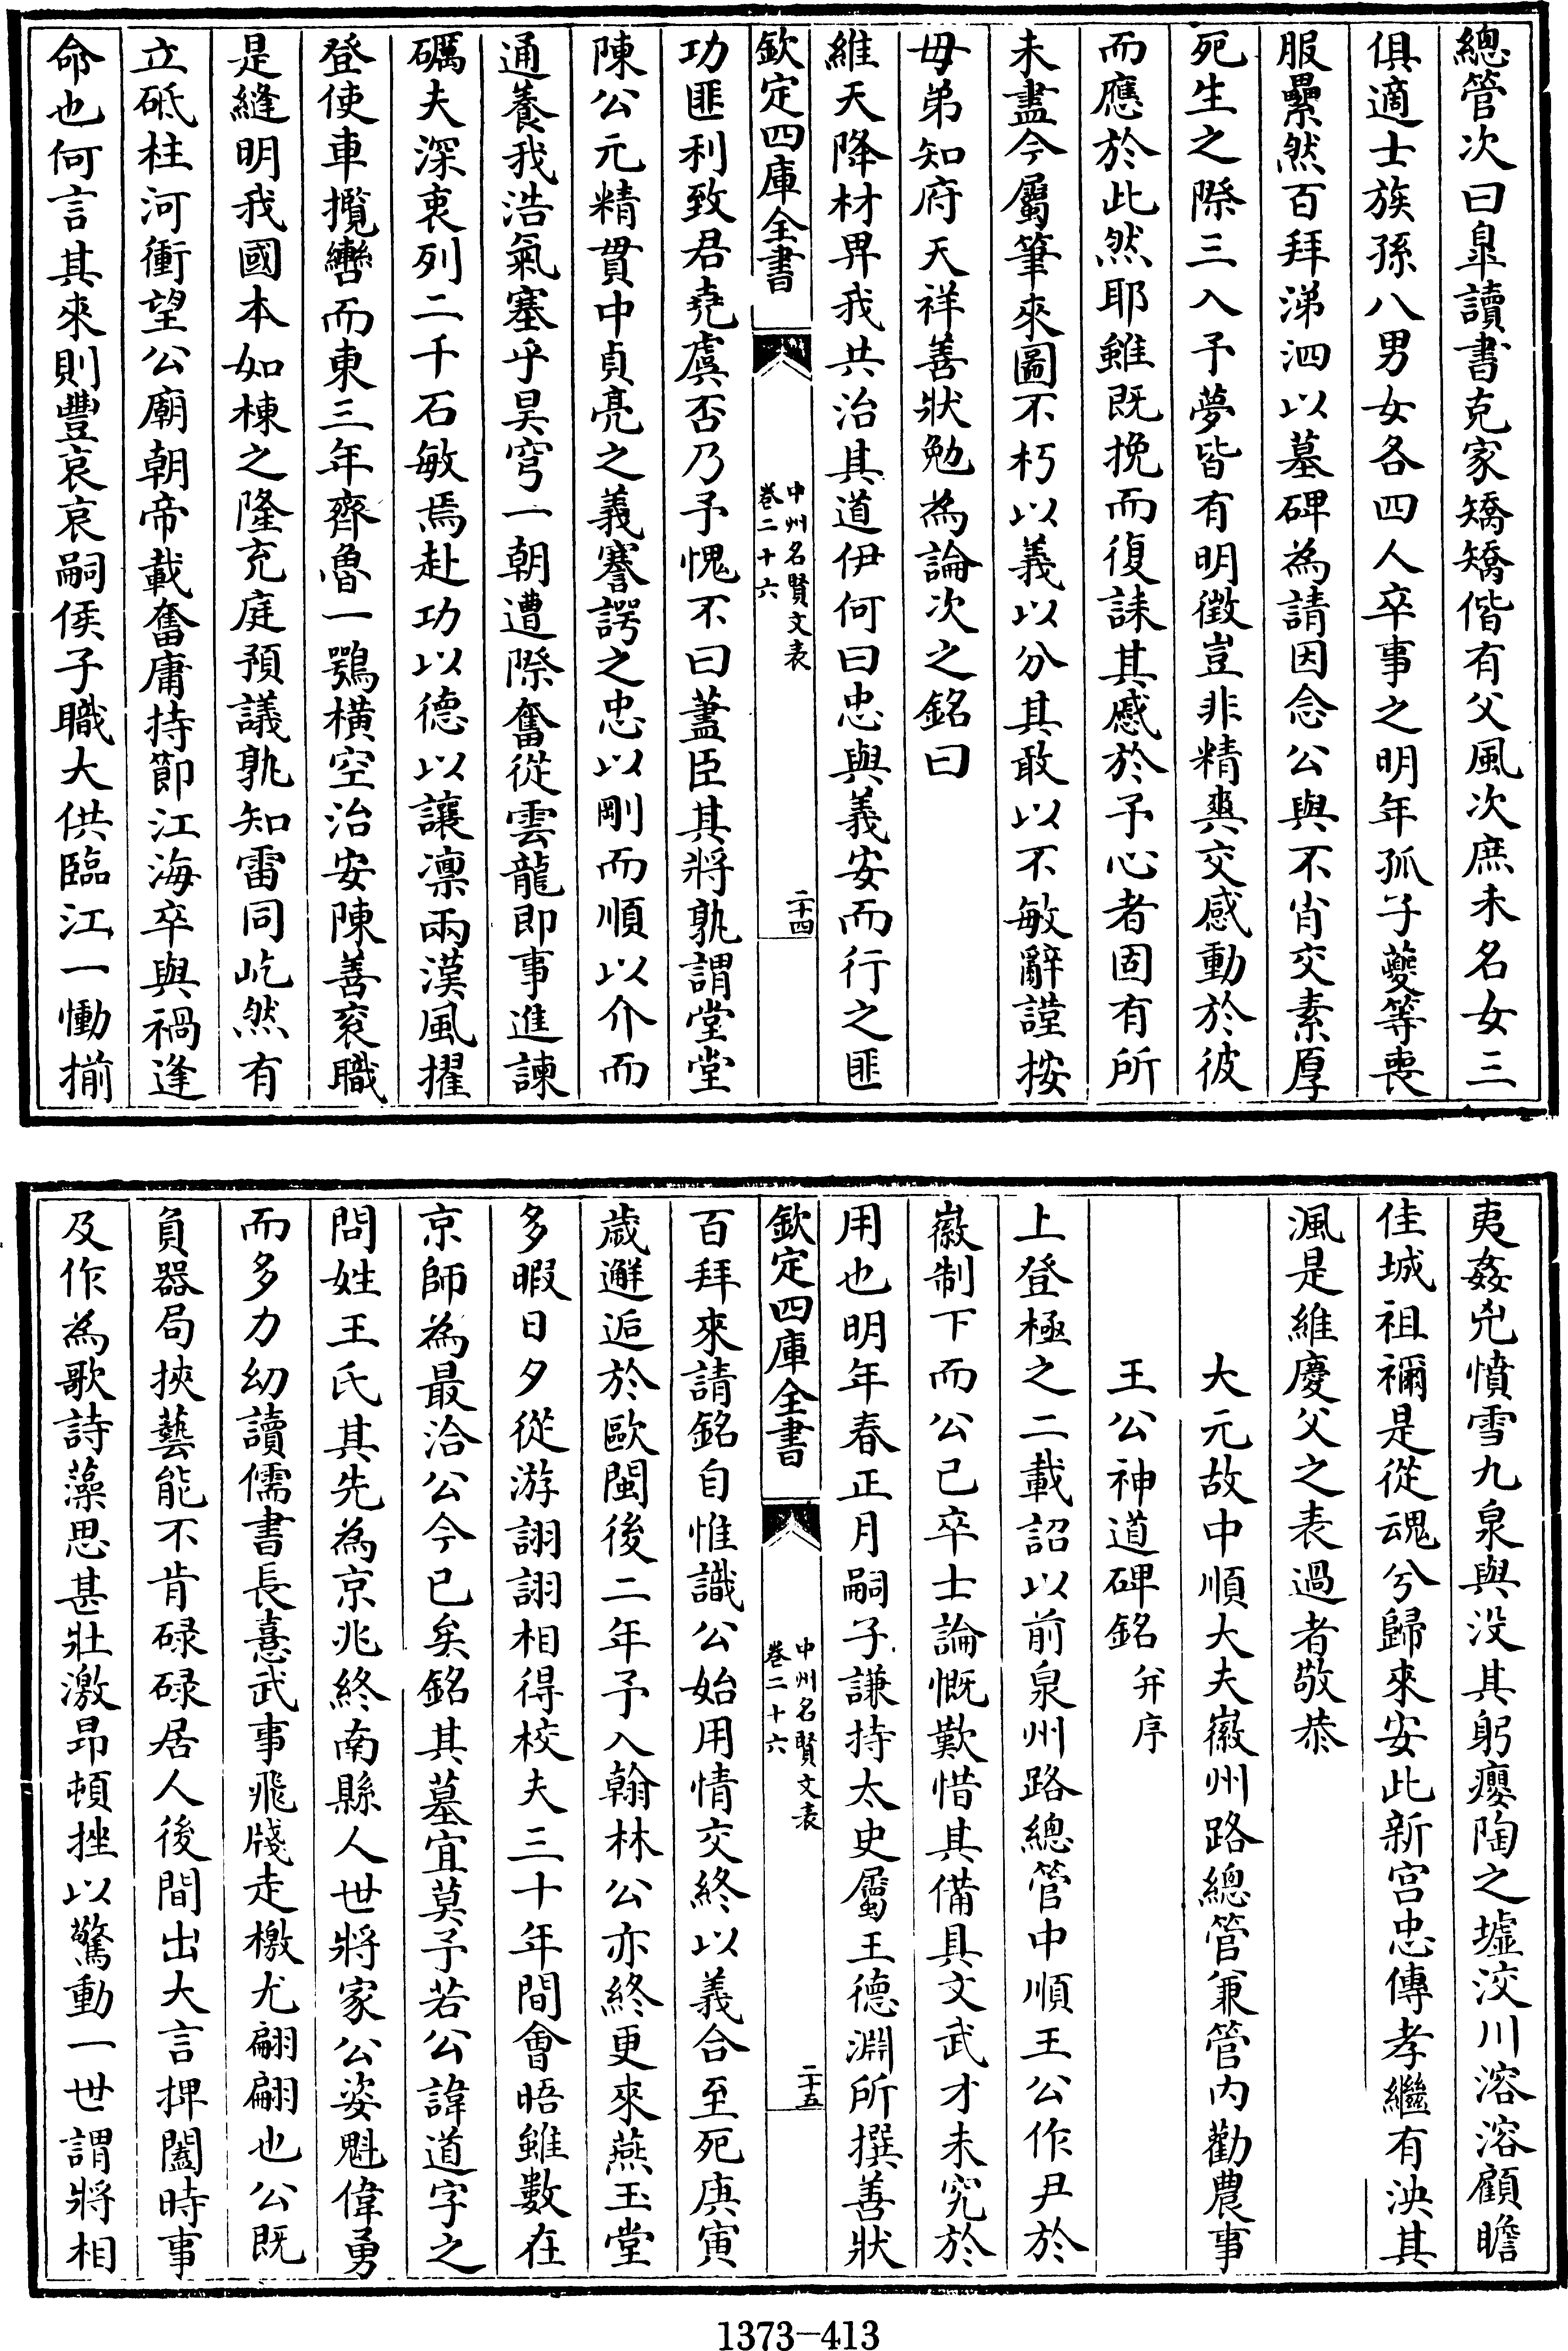 總管次曰臯讀書克家矯矯偕有父風次庶未名女三
俱適士族孫八男女各四人卒事之明年孤子夔等喪
服纍然百拜涕泗以墓碑為請因念公與不肖交素厚
死生之際三入予夢皆有明徵豈非精爽交感動於彼
而應於此然耶雖既挽而復誄其慼於予心者固有所
未盡今屬筆來圖不朽以義以分其敢以不敏辭謹按
母弟知府天祥善狀勉為論次之銘曰
維天降材畀我共治其道伊何曰忠與義安而行之匪
欽定四庫全書
中州名賢文表
卷二十六
二十四
功匪利致君堯虞否乃予愧不曰藎臣其將孰謂堂堂
陳公元精貫中貞亮之義謇諤之忠以剛而順以介而
通養我浩氣塞乎昊穹一朝遭際奮從雲龍即事進諫
礪夫深衷列二千石敏焉赴功以德以讓凛兩漢風擢
登使車攬轡而東三年齊魯一鶚橫空治安陳善衮職
是縫明我國本如棟之隆充庭預議孰知雷同屹然有
立砥柱河衝望公廟朝帝載奮庸持節江海卒與禍逢
命也何言其來則豐哀哀嗣侯子職大供臨江一慟揃
夷姦兇憤雪九泉與没其躬癭陶之墟洨川溶溶顧瞻
佳城祖禰是從魂兮歸來安此新宫忠傳孝繼有泱其
渢是維慶父之表過者敬恭
大元故中順大夫徽州路總管兼管内勸農事
王公神道碑銘并序
上登極之二載詔以前泉州路總管中順王公作尹於
徽制下而公已卒士論慨歎惜其備具文武才未究於
用也明年春正月嗣子謙持太史屬王德淵所撰善狀
欽定四庫全書
中州名賢文表
卷二十六
二十五
百拜來請銘自惟識公始用情交終以義合至死庚寅
歲邂逅於歐閩後二年予入翰林公亦終更來燕玉堂
多暇日夕從游詡詡相得校夫三十年間會晤雖數在
京師為最洽公今已矣銘其墓宜莫予若公諱道字之
問姓王氏其先為京兆終南縣人世將家公姿魁偉勇
而多力幼讀儒書長憙武事飛牋走檄尤翩翩也公既
負器局挾藝能不肯碌碌居人後間出大言捭闔時事
及作為歌詩藻思甚壯激昂頓挫以驚動一世謂將相
1373-413